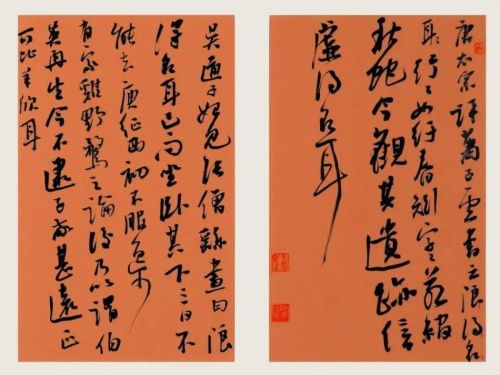 唐太宗評蕭子雲書云浪得名
耳行々如紆春蚓字々若綰
秋蛇今觀其遺跡信
虛得名耳
吳道子始見張僧繇畫曰浪
得名耳已而坐卧其下三日不
能去庾征西初不服逸少
有家雞野鶩之論後乃以謂伯
英再生今不逮子敬甚遠正
可比羊欣耳